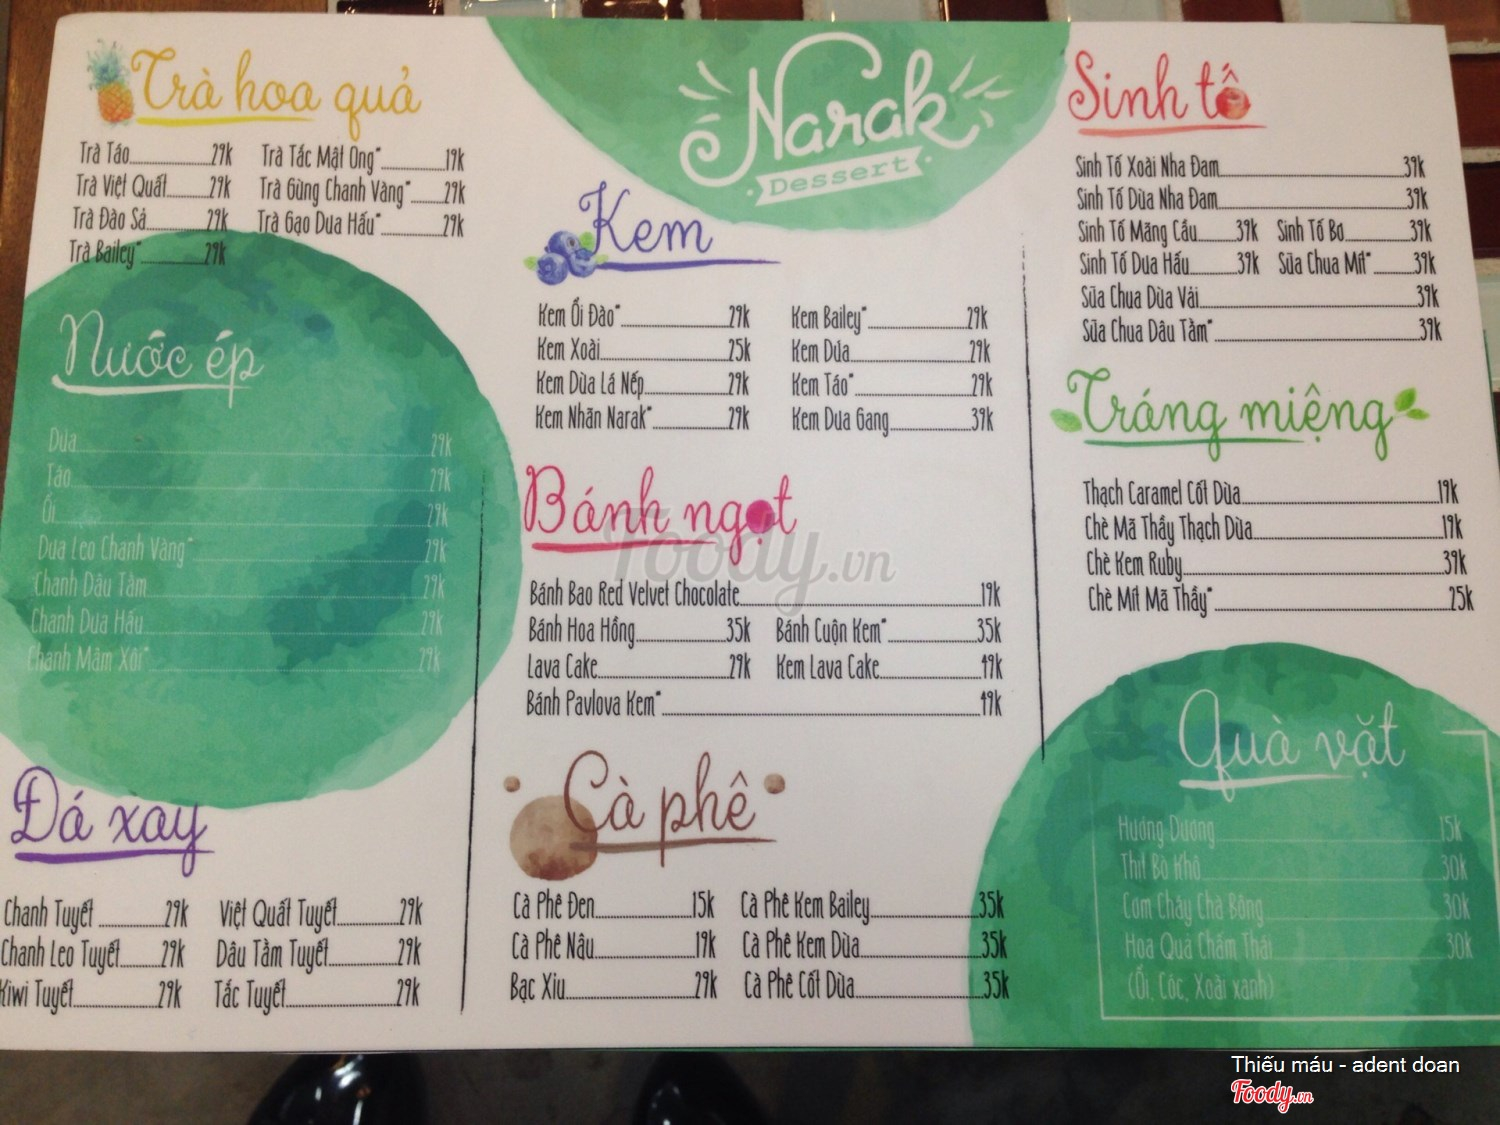 Trà hoa quả
Trà Táo 29k
Trà Việt Quất 29k
Trà Đào Sả 29k
Trà Bailey* 29k
Trà Tắc Mật Ong* 19k
Trà Gừng Chanh Vàng* 29k
Trà Gạo Dưa Hấu* 29k
Nước ép
Dứa 29k
Táo 29k
Ổi 29k
Dưa Leo Chanh Vàng* 29k
Chanh Dâu Tằm 29k
Chanh Dưa Hấu 29k
Chanh Mâm Xôi* 29k
Đá xay
Chanh Tuyết 29k
Chanh Leo Tuyết 29k
Kiwi Tuyết 29k
Việt Quất Tuyết 29k
Dâu Tằm Tuyết 29k
Tắc Tuyết 29k
Narak
Dessert
Kem
Kem Ổi Đào* 29k
Kem Xoài 25k
Kem Dừa Lá Nếp 29k
Kem Nhãn Narak* 29k
Kem Bailey* 29k
Kem Dứa 29k
Kem Táo* 29k
Kem Dưa Gang 39k
Bánh ngọt
Bánh Bao Red Velvet Chocolate 19k
Bánh Hoa Hồng 35k
Bánh Cuộn Kem* 35k
Lava Cake 29k
Kem Lava Cake 49k
Bánh Pavlova Kem* 49k
Cà phê
Cà Phê Đen 15k
Cà Phê Nâu 19k
Bạc Xỉu 29k
Cà Phê Kem Bailey 35k
Cà Phê Kem Dừa 35k
Cà Phê Cốt Dừa 35k
Sinh tố
Sinh Tố Xoài Nha Đam 39k
Sinh Tố Dừa Nha Đam 39k
Sinh Tố Mãng Cầu 39k
Sinh Tố Bơ 39k
Sinh Tố Dưa Hấu 39k
Sữa Chua Mít* 39k
Sữa Chua Dừa Vải 39k
Sữa Chua Dâu Tằm* 39k
Tráng miệng
Thạch Caramel Cốt Dừa 19k
Chè Mã Thầy Thạch Dừa 19k
Chè Kem Ruby 39k
Chè Mít Mã Thầy* 25k
Quà vặt
Hướng Dương 15k
Thịt Bò Khô 30k
Cơm Cháy Chà Bông 30k
Hoa Quả Chấm Thái 30k
(Ổi, Cóc, Xoài xanh)
Foody.vn
Thiếu máu - adent doan
Foody.vn